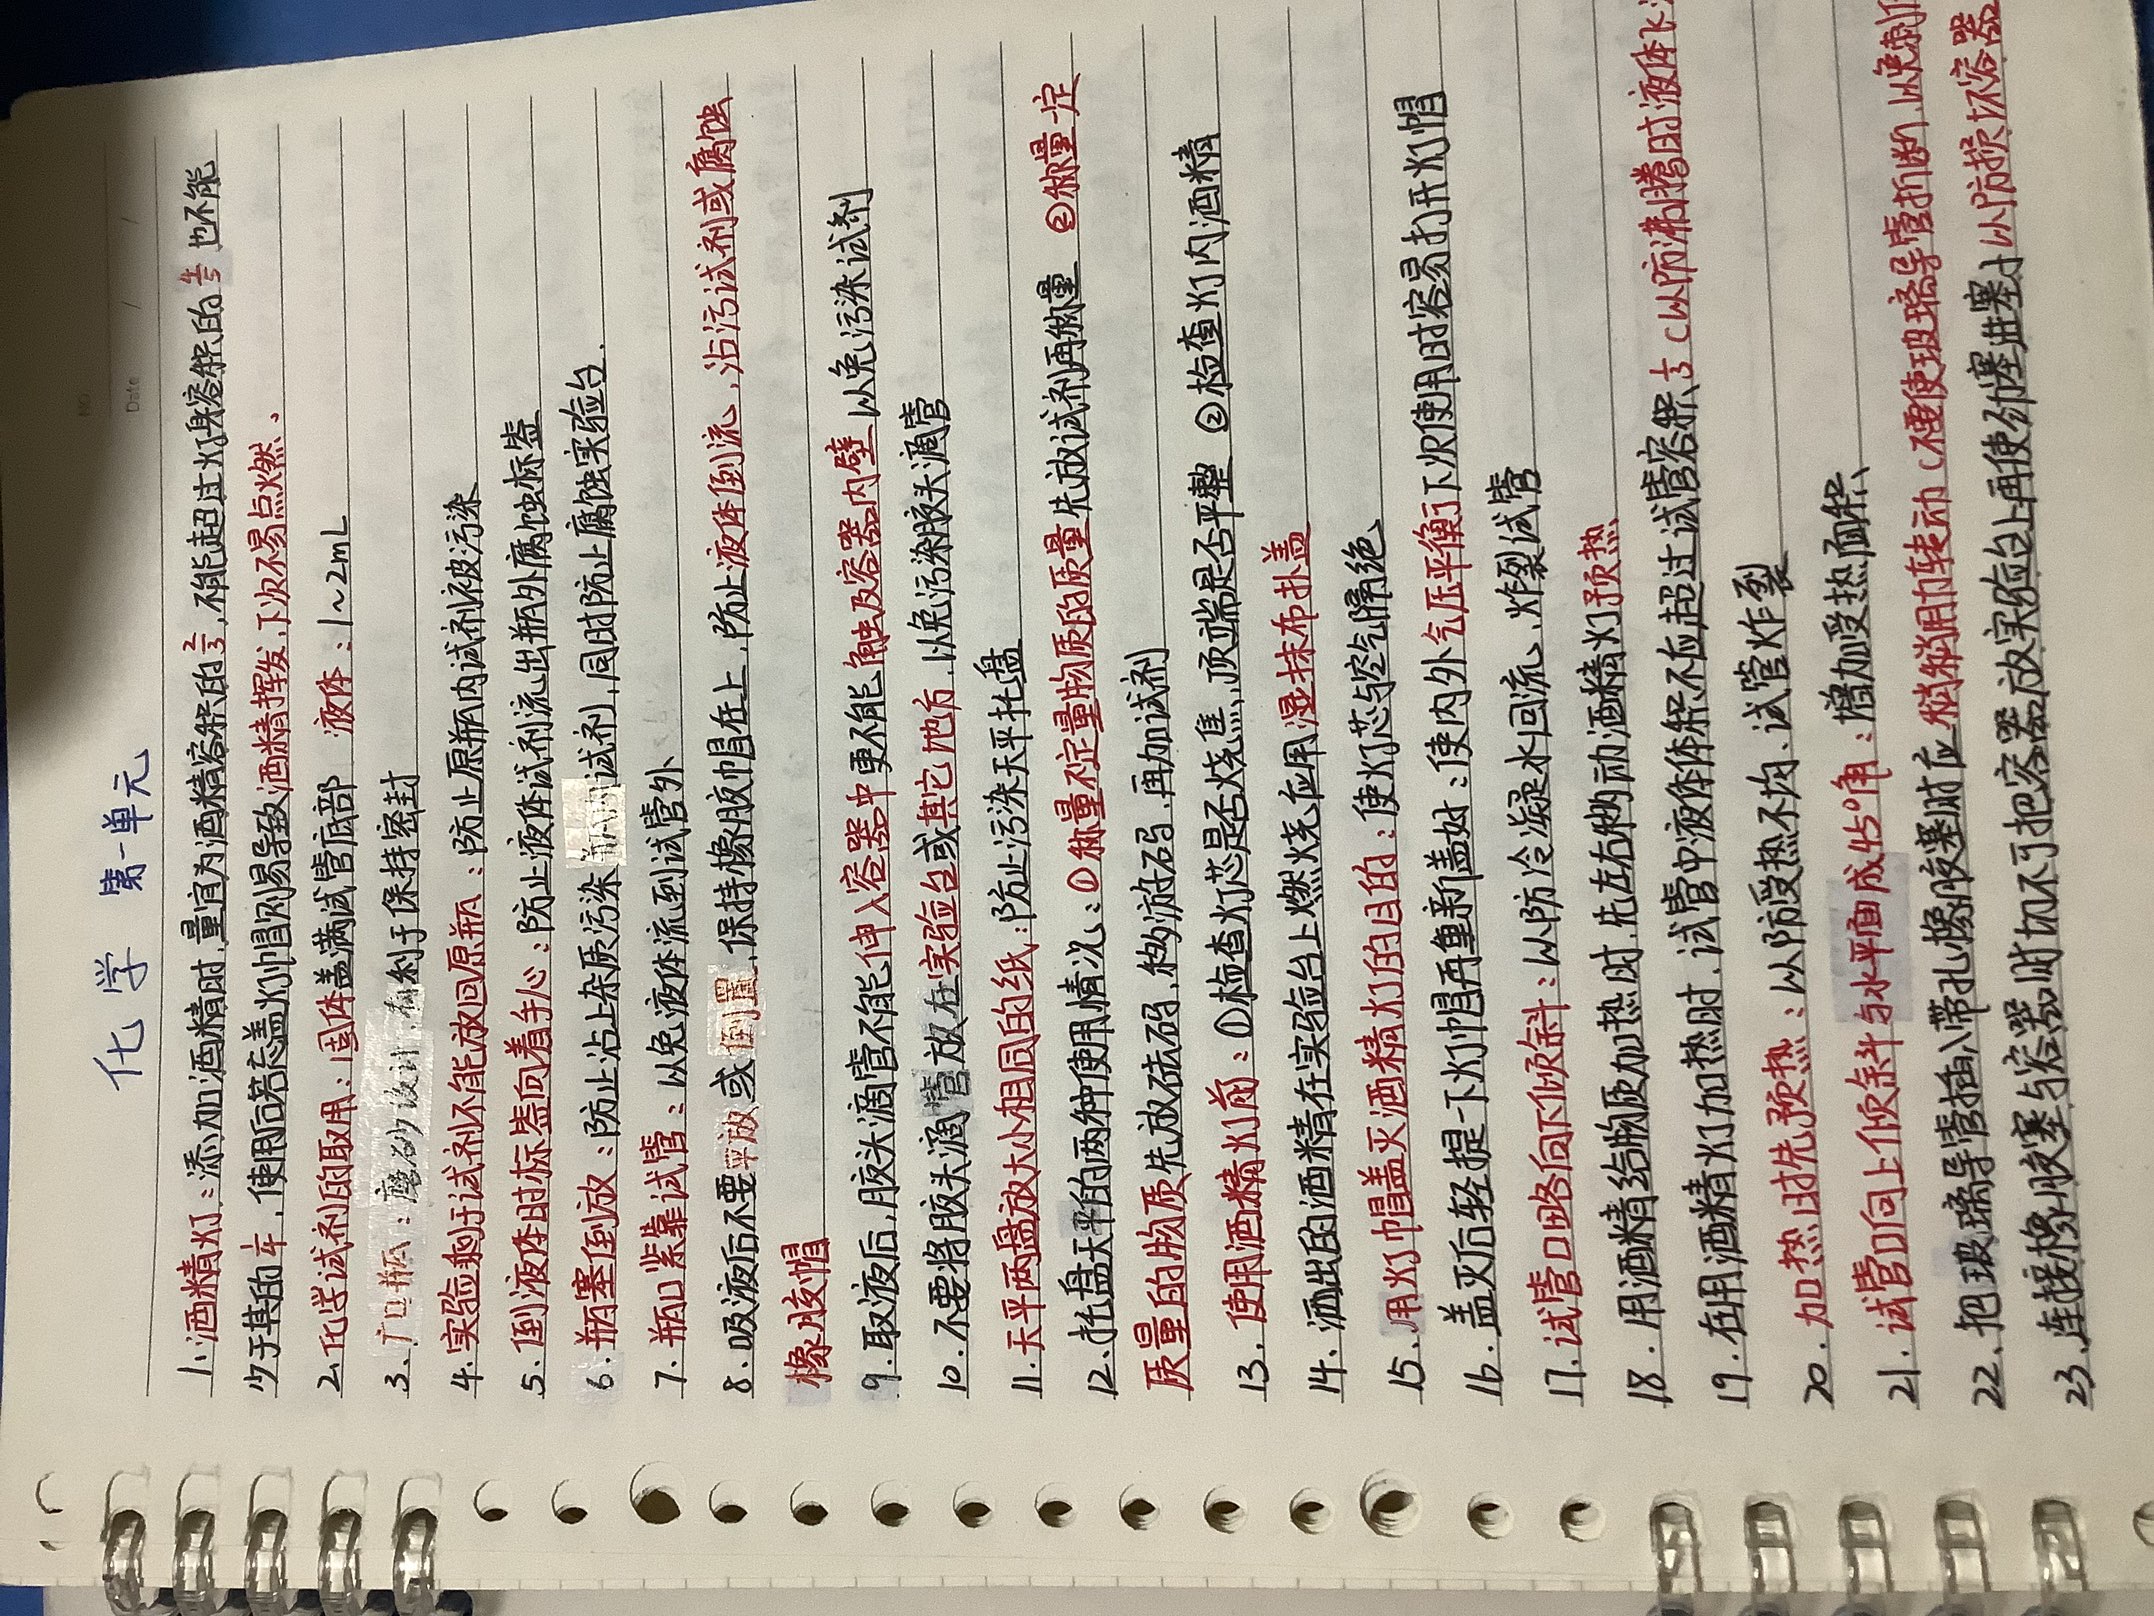 NO
Date / /
化学 第一单元
1.酒精灯:添加酒精时,量宜为酒精容积的2/3,不能超过灯身容积的 也不能
少于其的,使用后若忘盖灯帽则易导致酒精挥发,下次不易点燃、
2.化学试剂的取用:固体盖满试管底部 液体:1~2mL
3.广口瓶:磨砂设计,有利于保持密封
4.实验剩于试剂不能放回原瓶:防止原瓶内试剂被污染
5.倒液体时标签向着手心:防止液体试剂流出瓶外腐蚀标签
6.瓶塞倒放:防止沾上杂质污染瓶内试剂,同时防止腐蚀实验台.
7.瓶口紧靠试管:以免液体流到试管外
8.吸液后不要平放或倒置,保持橡胶帽在上,防止液体倒流、沾污试剂或腐蚀
橡胶帽
9.取液后,胶头滴管不能伸入容器中更不能触及容器内壁,以免污染试剂
10.不要将胶头滴管放在实验台或其它地方,以免污染胶头滴管
11.天平两盘放大小相同的纸:防止污染天平托盘
12.托盘天平的两种使用情况:①称量不定量物质的质量先放试剂再称量 ②称量一定
质量的物质先放砝码,移游码,再加试剂
13.使用酒精灯前:①检查灯芯是否烧焦,顶端是否平整 ②检查灯内酒精
14.洒出的酒精在实验台上燃烧应用湿抹布扑盖
15.用灯帽盖灭酒精灯的目的:使灯芯与空气隔绝
16.盖灭后轻提一下灯帽再重新盖好:使内外气压平衡了下次使用时容易打开灯帽
17.试管口略向下倾斜:以防冷凝水回流、炸裂试管
18.用酒精给物质加热时,先左右移动酒精灯预热
19.在用酒精灯加热时,试管中液体体积不应超过试管容积1/3(以防沸腾时液体飞
20.加热时先预热:以防受热不均、试管炸裂
21.试管口向上倾斜与水平面成45°角:增加受热面积
22.把玻璃导管插入带孔橡胶塞时应稍稍用力转动(不要使玻璃导管折断,以免刺
23.连接橡胶塞与容器时切不可把容器放实验台上再使劲塞进塞子以防损坏容器